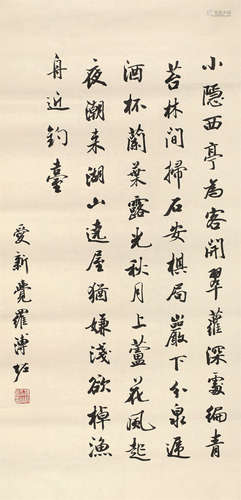 小隱西亭為客開翠蘿深處徧青
苔林間掃石安棋局巖下分泉遞
酒杯蘭葉露光秋月上蘆花風起
夜潮來湖山遶屋猶嫌淺欲棹漁
舟近釣臺
愛新覺羅溥佐